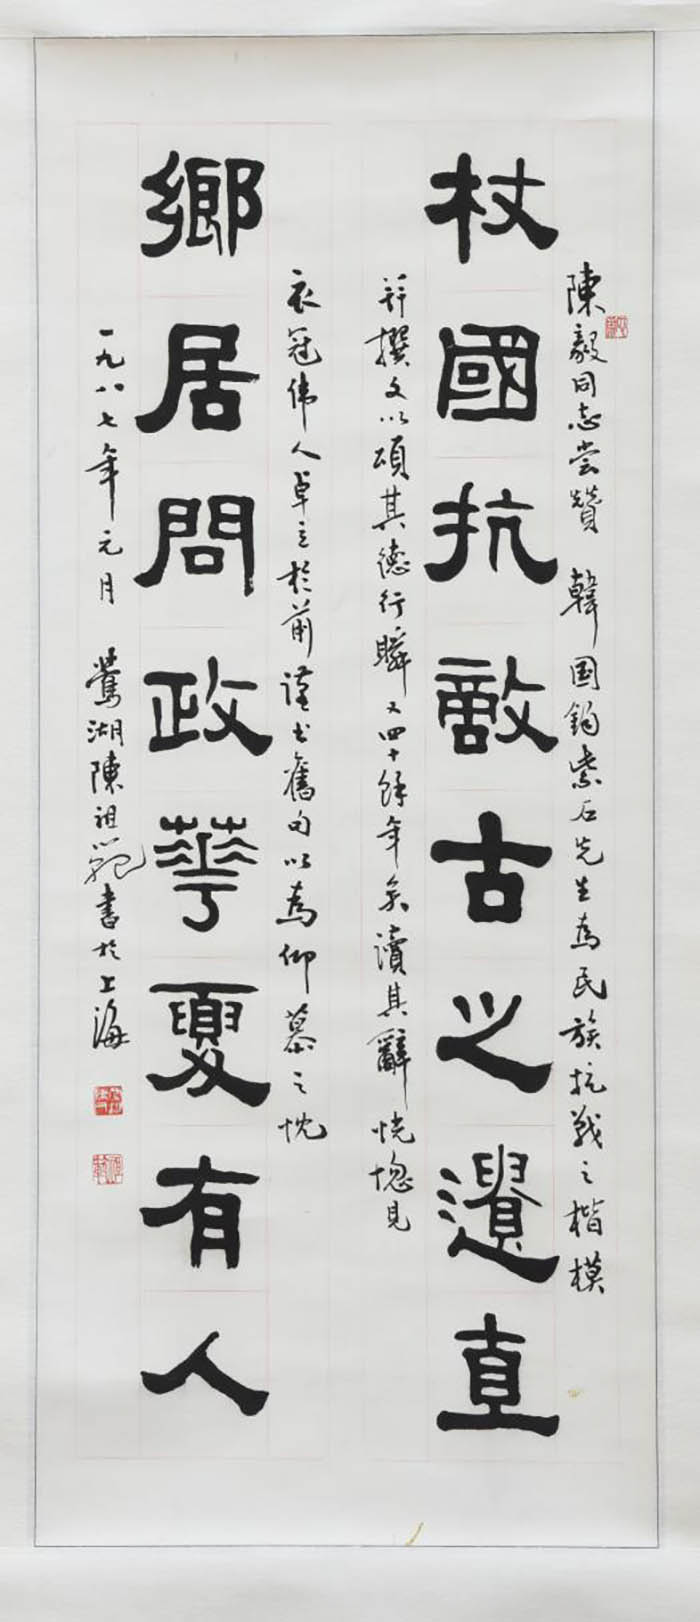 陳毅同志嘗贊 韓国鈞紫石先生為民族抗战之楷模
杖國抗敵古之遺直
并撰文以頌其德行瞬又四十餘年矣讀其辭恍惚見
衣冠伟人卓立於前谨书舊句以為仰慕之忱
鄉居問政華夏有人
一九八七年元月 鶯湖陳祖範書於上海